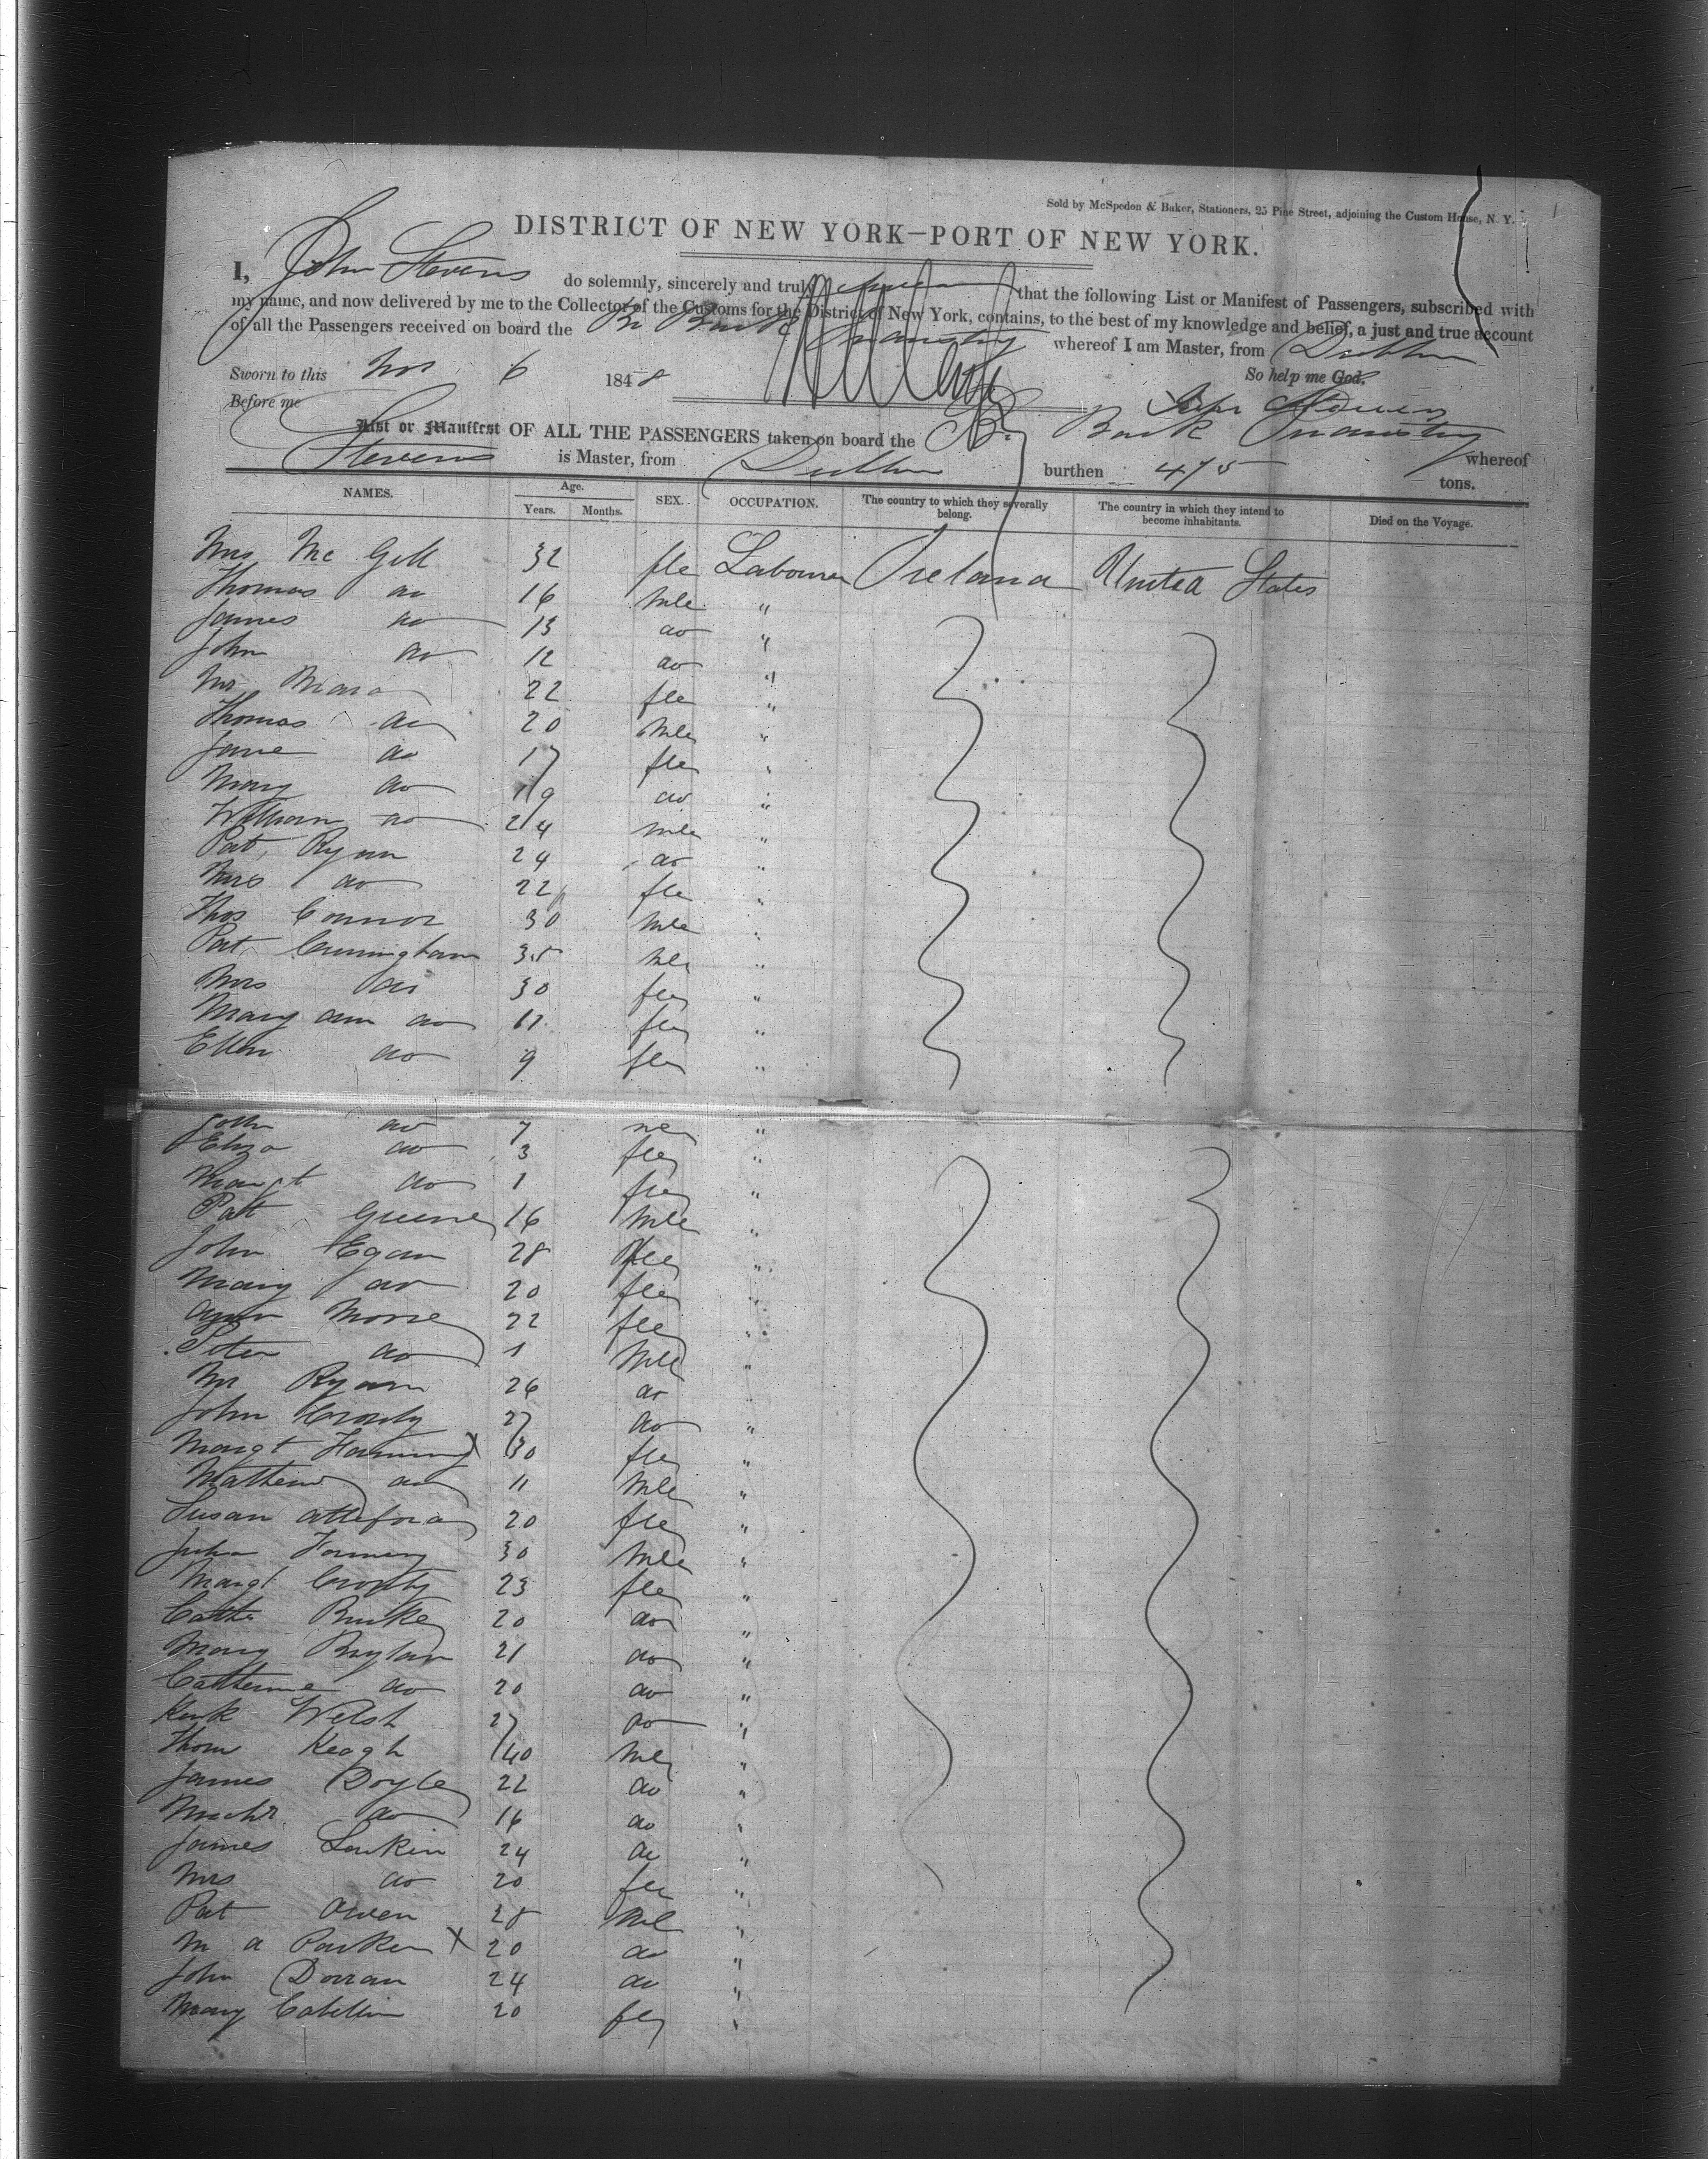 Sold by McSpedon & Baker, Stationers, 25 Pine Street, adjoining the Custom House, N. Y.
DISTRICT OF NEW YORK—PORT OF NEW YORK.
I, John Stevens do solemnly, sincerely and truly that the following List or Manifest of Passengers, subscribed with
my name, and now delivered by me to the Collector of the Customs for the District of New York, contains, to the best of my knowledge and belief, a just and true account
of all the Passengers received on board the Br. Bark whereof I am Master, from Dublin
Sworn to this Nov 6 1848 So help me God.
Before me
List or Manifest OF ALL THE PASSENGERS taken on board the Br. Bark
whereof Stevens is Master, from Dublin burthen 475 tons.
NAMES. Age. Years. Months. SEX. OCCUPATION. The country to which they severally belong. The country in which they intend to become inhabitants. Died on the Voyage.
Mrs Mc Gill 32 fle Labourer Ireland United States
Thomas do 16 mle "
James do 13 do "
John do 12 do "
22 fle "
Thomas do 20 mle "
Jane do 17 fle "
Mary do 19 do "
William do 24 mle "
Pat Ryan 24 do "
Mrs do 22 fle "
Thos Connor 30 mle "
Pat Cunningham 35 mle "
Mrs do 30 fle "
Mary ann do 11 fle "
Ellen do 9 fle "
John do 7 "
Eliza do 3 fle "
Margt do 1 fle "
Pat 16 mle "
John Egan 28 "
Mary do 20 fle "
22 fle "
Peter do 1 mle "
Mr Ryan 26 do "
John Crosby 27 do "
Margt X 30 fle "
Mathew do 11 mle "
Susan 20 fle "
30 mle "
Margt Crosby 23 fle "
Cathe Burke 20 do "
Mary 21 do "
Catherine do 20 do "
Welsh 27 do "
Thom Keogh 40 mle "
James Doyle 22 do "
Michl do 16 do "
James Larkin 24 do "
Mrs do 20 fle "
Pat Owen 28 mle "
M a Parker X 20 do "
John Dorran 24 do "
Mary 20 fle "